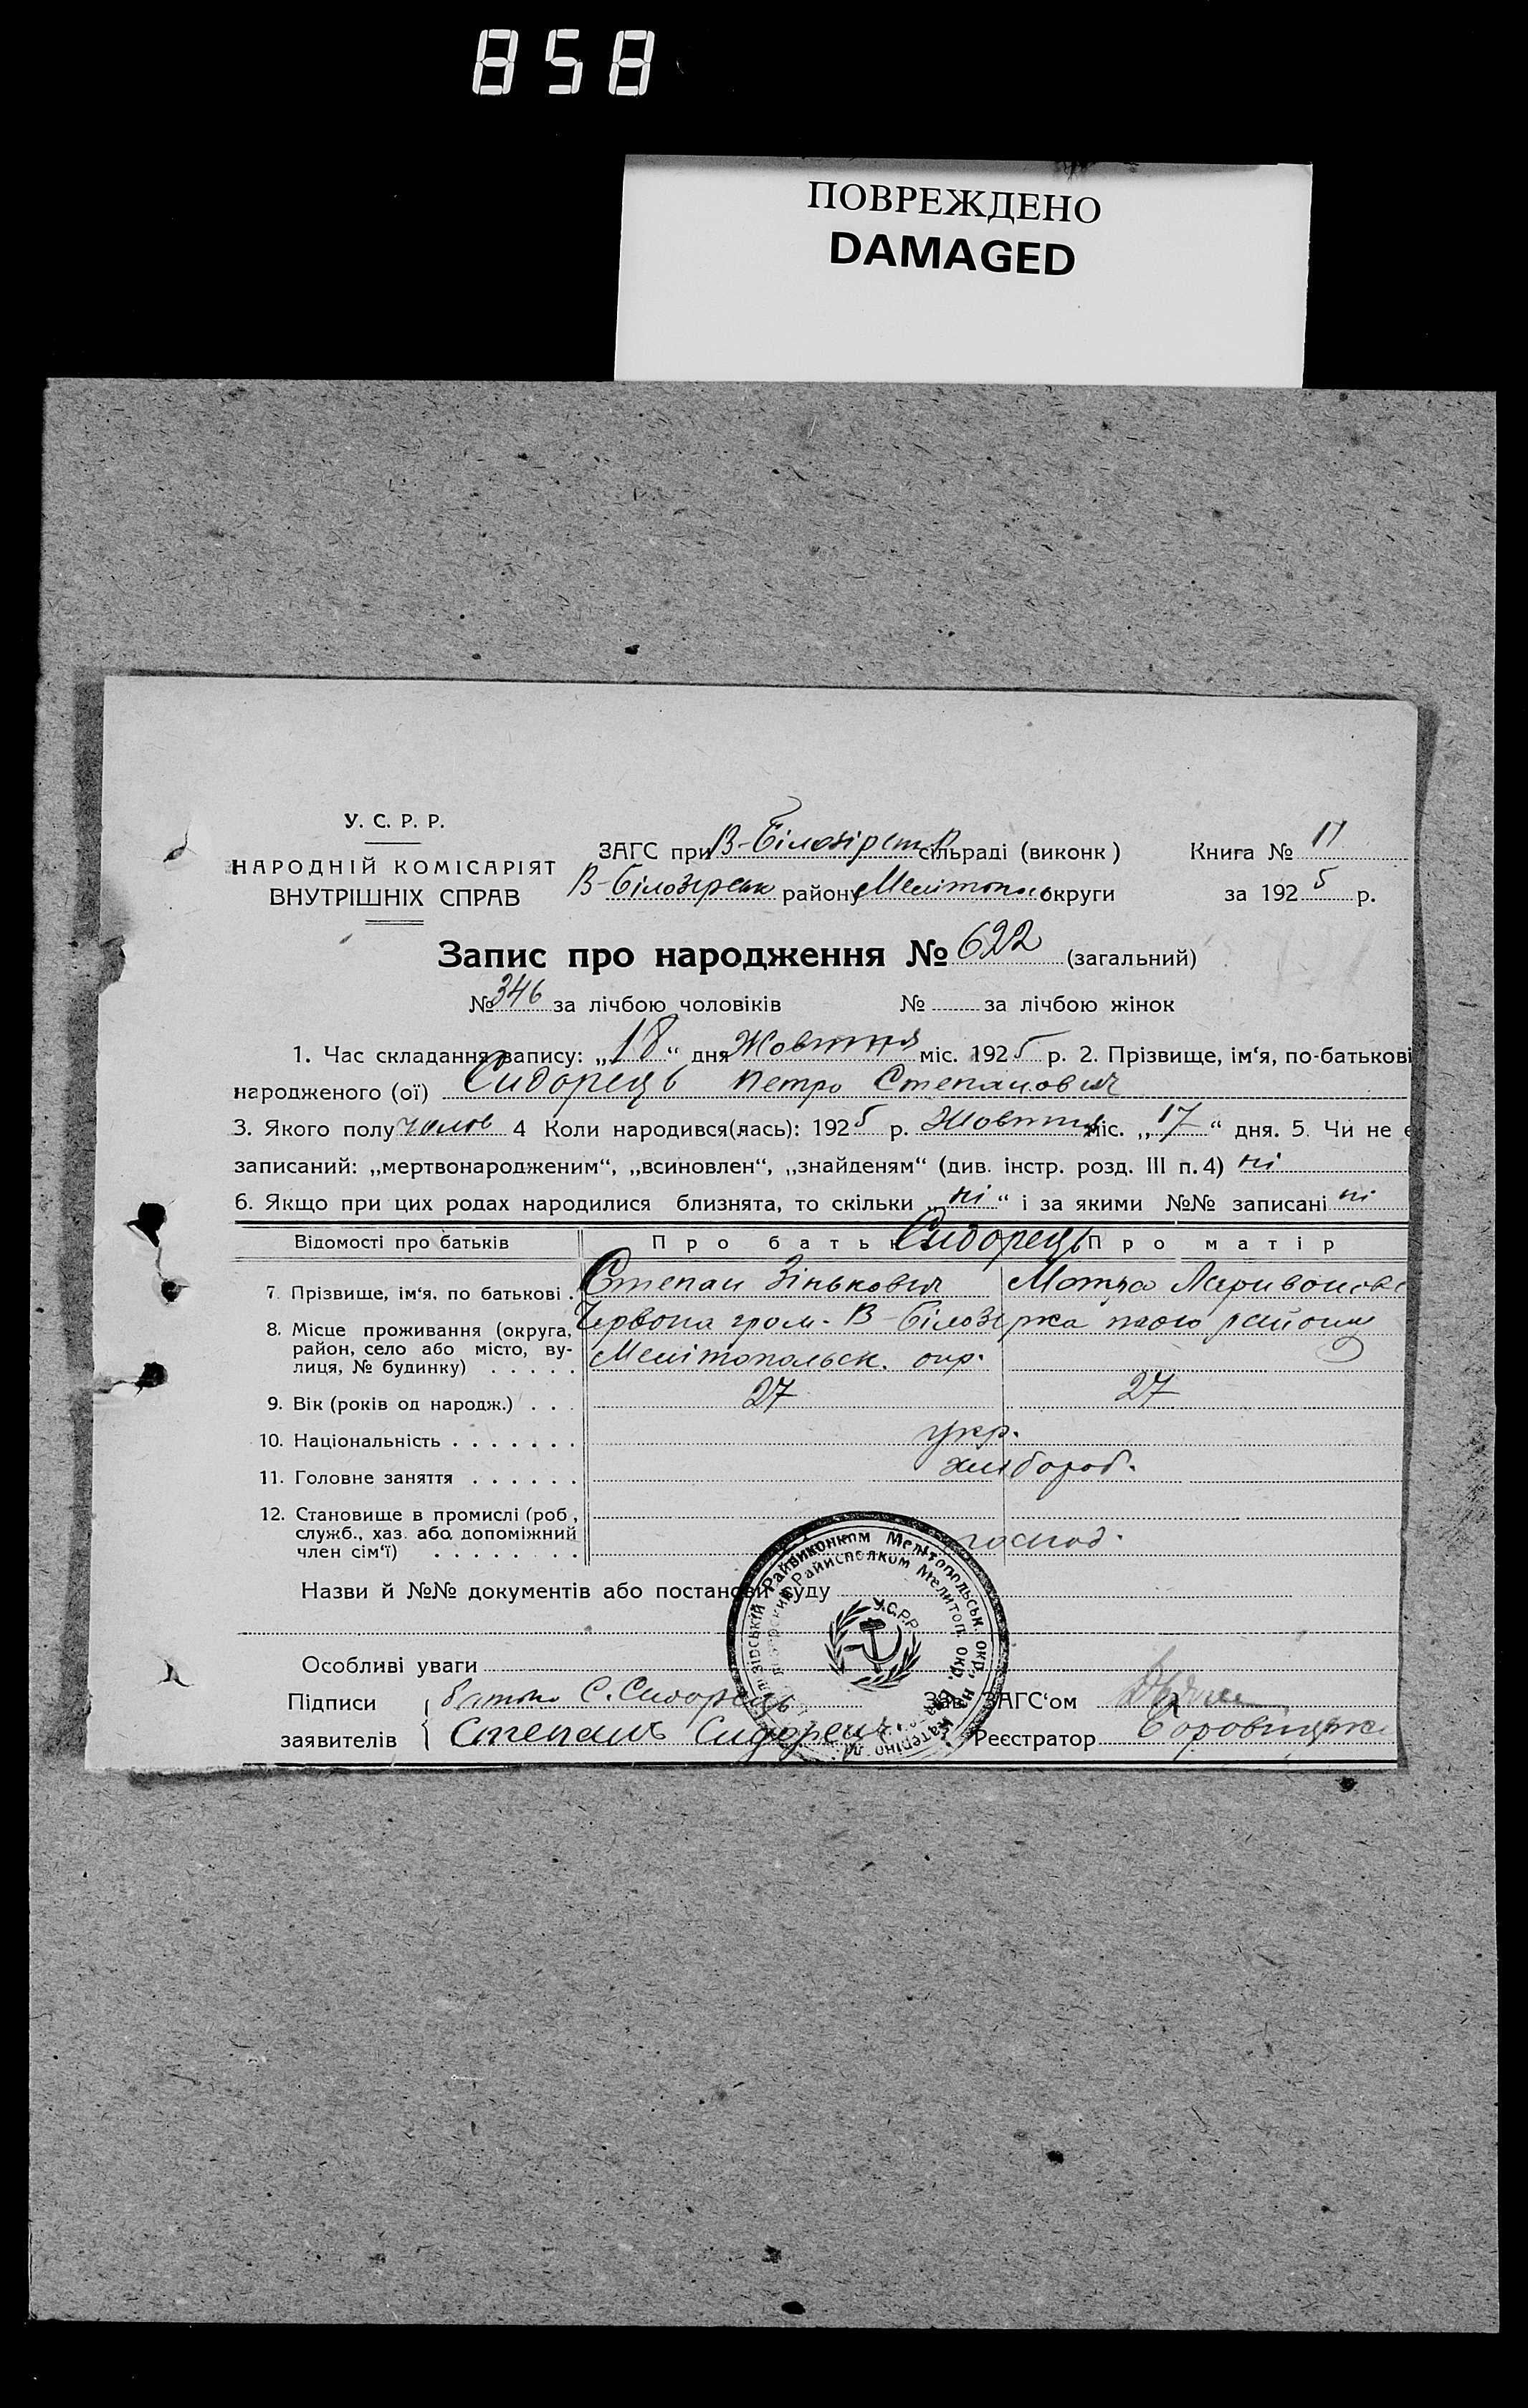 858
ПОВРЕЖДЕНО
DAMAGED
У. С. Р. Р.
НАРОДНІЙ КОМІСАРІЯТ
ВНУТРІШНІХ СПРАВ
ЗАГС при В-Білозірськ сільраді (виконк) Книга № 11
В-Білозірськ району Мелітополь округи за 1925 р.
Запис про народження № 622 (загальний)
№ 346 за лічбою чоловіків № за лічбою жінок
1. Час складання запису: „18“ дня Жовтня міс. 1925 р. 2. Прізвище, ім‘я, по-батькові
народженого (ої) Сидорець Петро Степанович
3. Якого полу чолов 4 Коли народився(лась): 1925 р. Жовтня міс. „17“ дня. 5. Чи не є
записаний: „мертвонародженим“, „всиновлен“, „знайденям“ (див. інстр. розд. III п. 4) ні
6. Якщо при цих родах народилися близнята, то скільки „ні“ і за якими №№ записані ні
Відомості про батьків Про батьк Сидорець Про матір
7. Прізвище, ім‘я, по батькові . Степан Зінькович Мотря Ларивонов
8. Місце проживання (округа, Червона гром. В-Білозірка того району
район, село або місто, ву-
лиця, № будинку) . . . . . Мелітопольск. окр.
9. Вік (років од народж.) . . . 27 27
10. Національність . . . . . . . укр.
11. Головне заняття . . . . . . хлібороб.
12. Становище в промислі (роб,
служб., хаз. або допоміжний
член сім‘ї) . . . . . . . . господ.
Назви й №№ документів або постанови суду
Райвиконком Мелітопольськ. окр., на
Райисполком Мелитоп. окр.
У.С.Р.Р.
Особливі уваги
Підписи батько С. Сидорець Зав. ЗАГС‘ом
заявителів Степань Сидорець Реєстратор